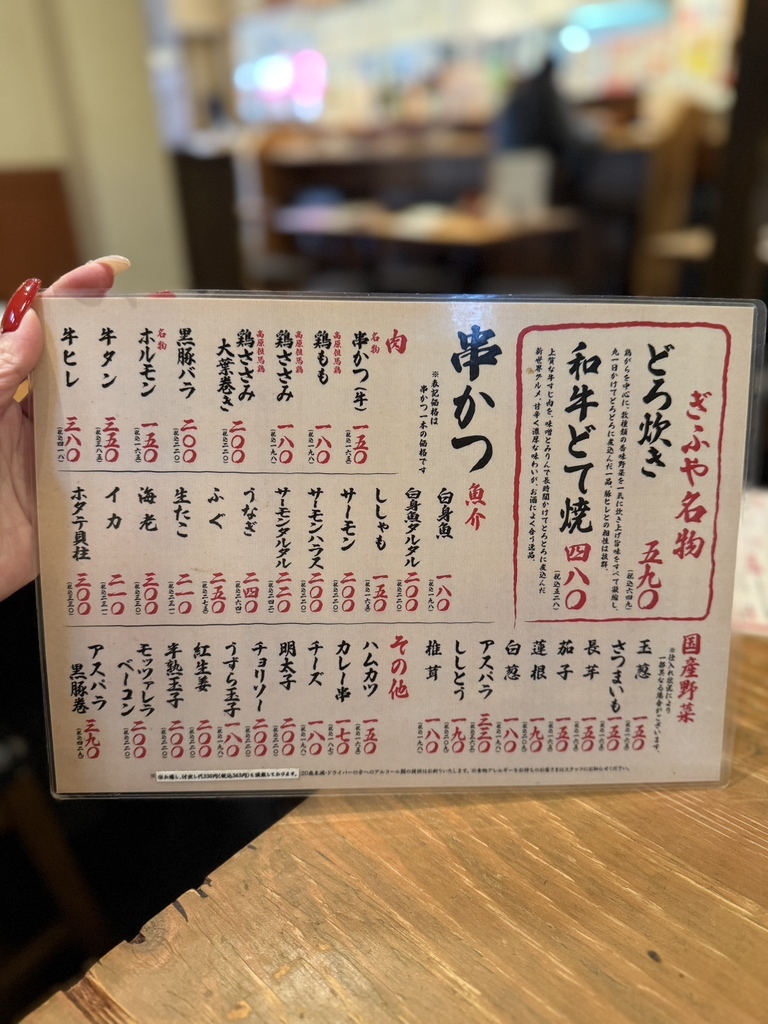 ぎふや名物
どろ炊き 五九〇
(税込六四九)
和牛どて焼 四八〇
(税込五二八)
上質な牛すじ肉を、味噌とみりんで長時間かけてとろとろに煮込んだ
新世界グルメ。甘辛く濃厚な味わいが、お酒によく合う逸品。
串かつ
※表記価格は
串かつ一本の価格です
肉
名物
串かつ(牛) 一五〇
(税込一六五)
高原但馬鶏
鶏もも 一八〇
(税込一九八)
高原但馬鶏
鶏ささみ 一八〇
(税込一九八)
高原但馬鶏
鶏ささみ
大葉巻き 二〇〇
(税込二二〇)
黒豚バラ 二〇〇
(税込二二〇)
名物
ホルモン 一五〇
(税込一六五)
牛タン 三五〇
(税込三八五)
牛ヒレ 三八〇
(税込四一八)
魚介
白身魚 一八〇
(税込一九八)
白身魚タルタル 二〇〇
(税込二二〇)
ししゃも 一五〇
(税込一六五)
サーモン 二〇〇
(税込二二〇)
サーモンハラス 二〇〇
(税込二二〇)
サーモンタルタル 二二〇
(税込二四二)
うなぎ 二四〇
(税込二六四)
ふぐ 二五〇
(税込二七五)
生たこ 二一〇
(税込二三一)
海老 三〇〇
(税込三三〇)
イカ 二一〇
(税込二三一)
ホタテ貝柱 三〇〇
(税込三三〇)
国産野菜
※仕入れ状況により
一部異なる場合がございます。
玉葱 一五〇
(税込一六五)
さつまいも 一五〇
(税込一六五)
長芋 一五〇
(税込一六五)
茄子 一五〇
(税込一六五)
蓮根 一九〇
(税込二〇九)
白葱 一八〇
(税込一九八)
アスパラ 三三〇
(税込三六三)
ししとう 一九〇
(税込二〇九)
椎茸 一八〇
(税込一九八)
その他
ハムカツ 一五〇
(税込一六五)
カレー串 一七〇
(税込一八七)
チーズ 一八〇
(税込一九八)
明太子 二〇〇
(税込二二〇)
チョリソー 二〇〇
(税込二二〇)
うずら玉子 一八〇
(税込一九八)
紅生姜 二〇〇
(税込二二〇)
半熟玉子 二〇〇
(税込二二〇)
モッツァレラ
ベーコン 二〇〇
(税込二二〇)
アスパラ
黒豚巻 三九〇
(税込四二九)
※お通し、付出し代330円(税込363円)を頂戴しております。 20歳未満・ドライバーの方へのアルコール類の提供はお断りいたします。※食物アレルギーをお持ちのお客さまはスタッフにお知らせください。